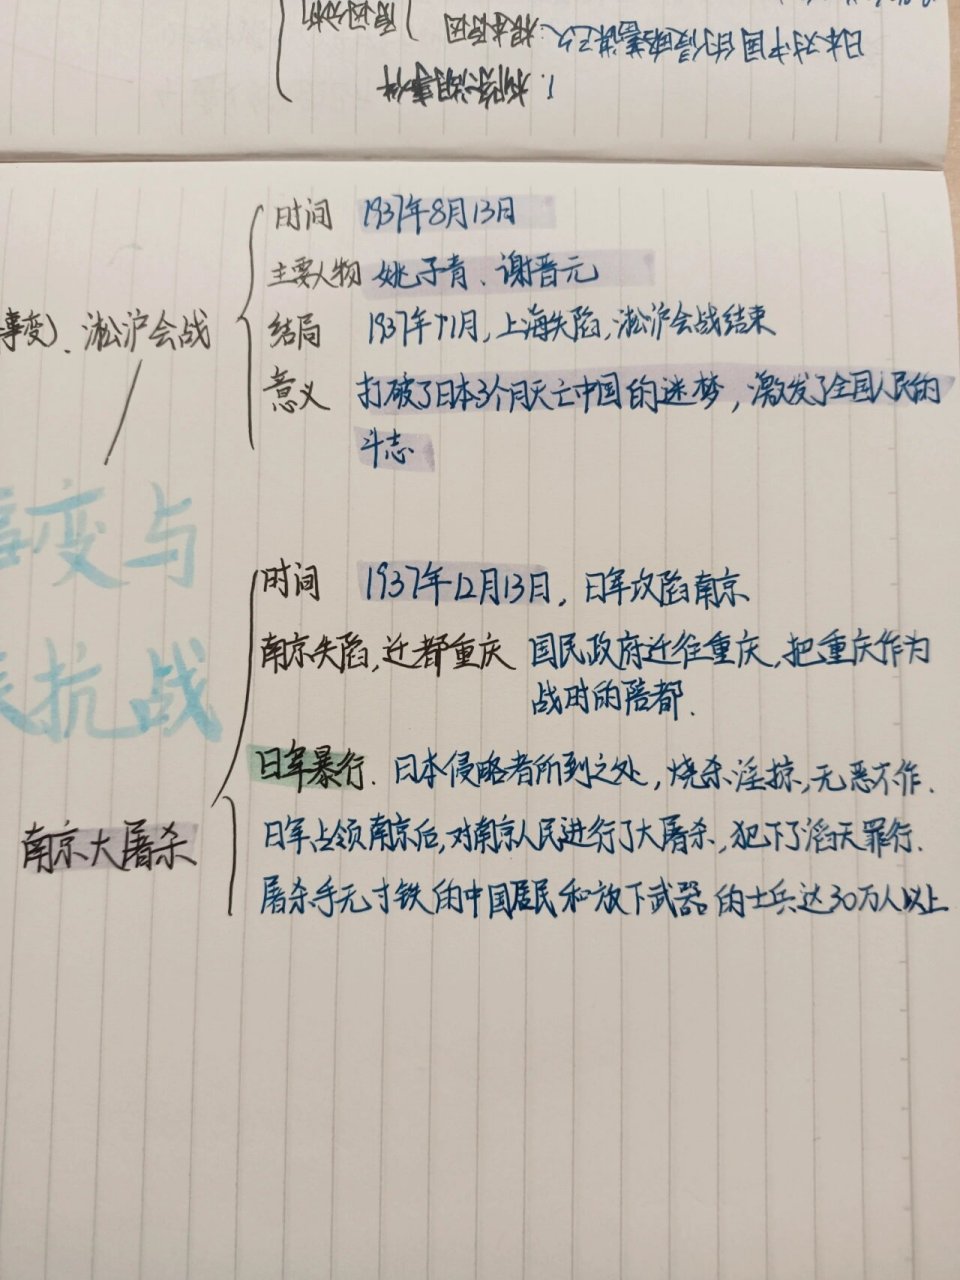 原因分析
根本原因：日本对中国的侵略蓄谋已久
1. 柳条湖事件
事变）、淞沪会战
时间 1937年8月13日
主要人物 姚子青、谢晋元
结局 1937年11月，上海失陷，淞沪会战结束
意义 打破了日本3个月灭亡中国的迷梦，激发了全国人民的
斗志
变与
抗战
南京大屠杀
时间 1937年12月13日，日军攻陷南京
南京失陷，迁都重庆 国民政府迁往重庆，把重庆作为
战时的陪都.
日军暴行. 日本侵略者所到之处，烧杀淫掠，无恶不作.
日军占领南京后，对南京人民进行了大屠杀，犯下了滔天罪行.
屠杀手无寸铁的中国居民和放下武器的士兵达30万人以上